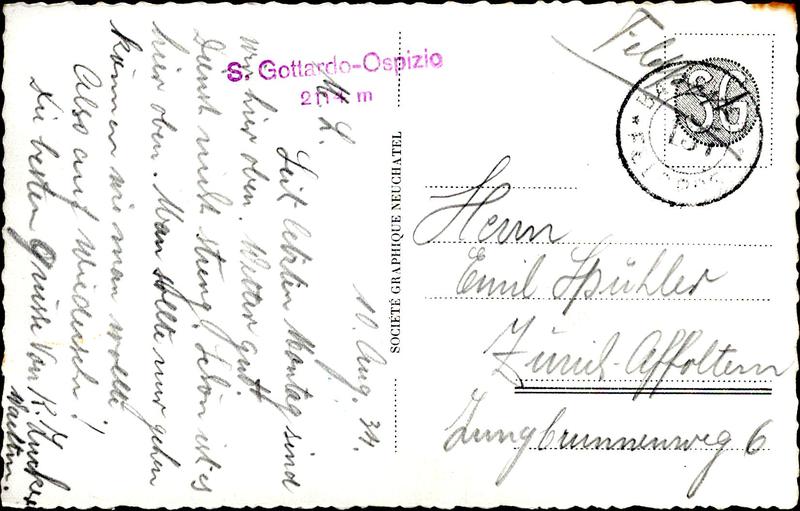 S. Gottardo-Ospizio
2114 m
10. Aug. 34.
M. L.
Seit letzten Montag sind
wir hier oben. Wetter gut.
Dienst nicht streng. Schön ist es
hier oben. Man sollte nur gehen
können wie man wollte
Also auf Wiedersehn!
Die besten Grüsse von K.
SOCIETÉ GRAPHIQUE NEUCHATEL
Feldpost
SG
Herrn
Emil Spühler
Zürich-Affoltern
Jungbrunnenweg 6